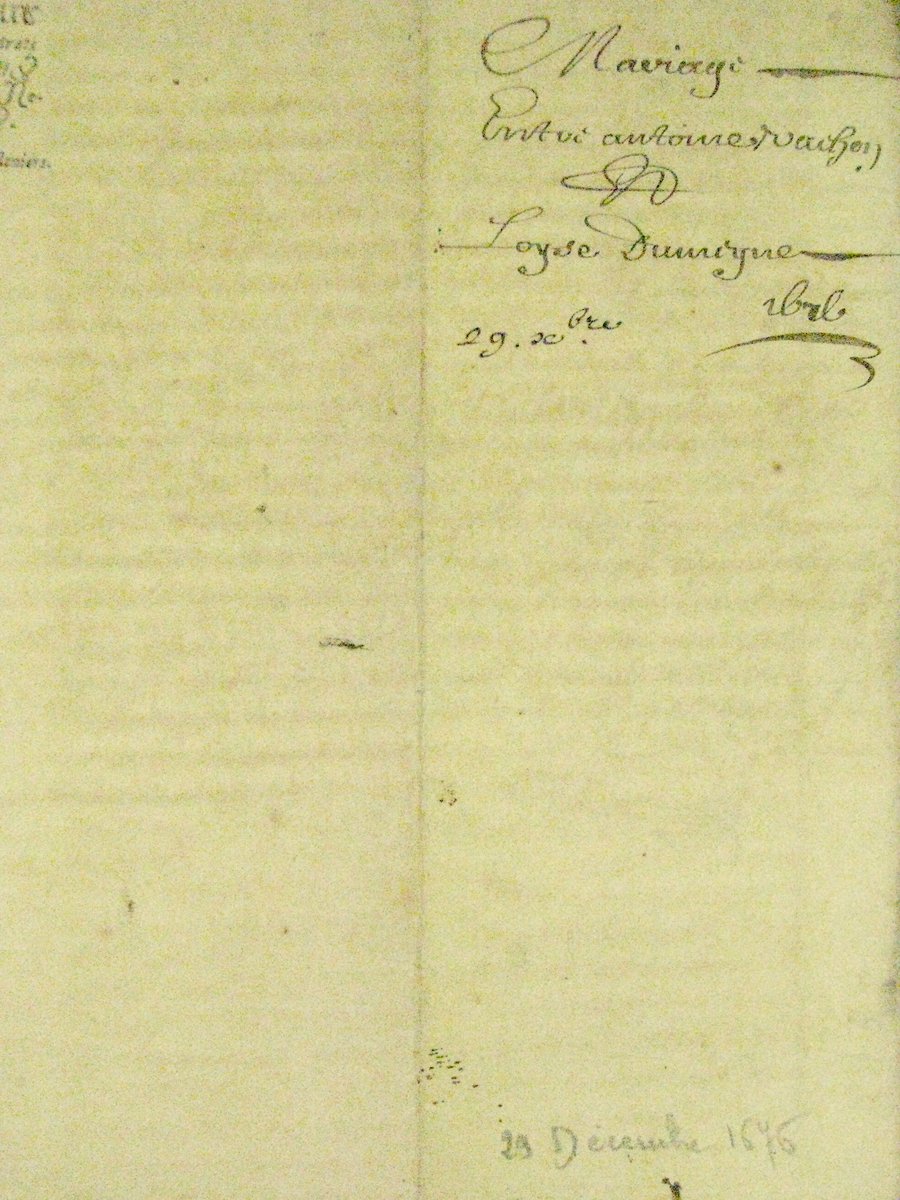 Mariage
Entre antoine Vachon
Et
Loyse Dumeyne
1676
29. xbre
29 Décembre 1676